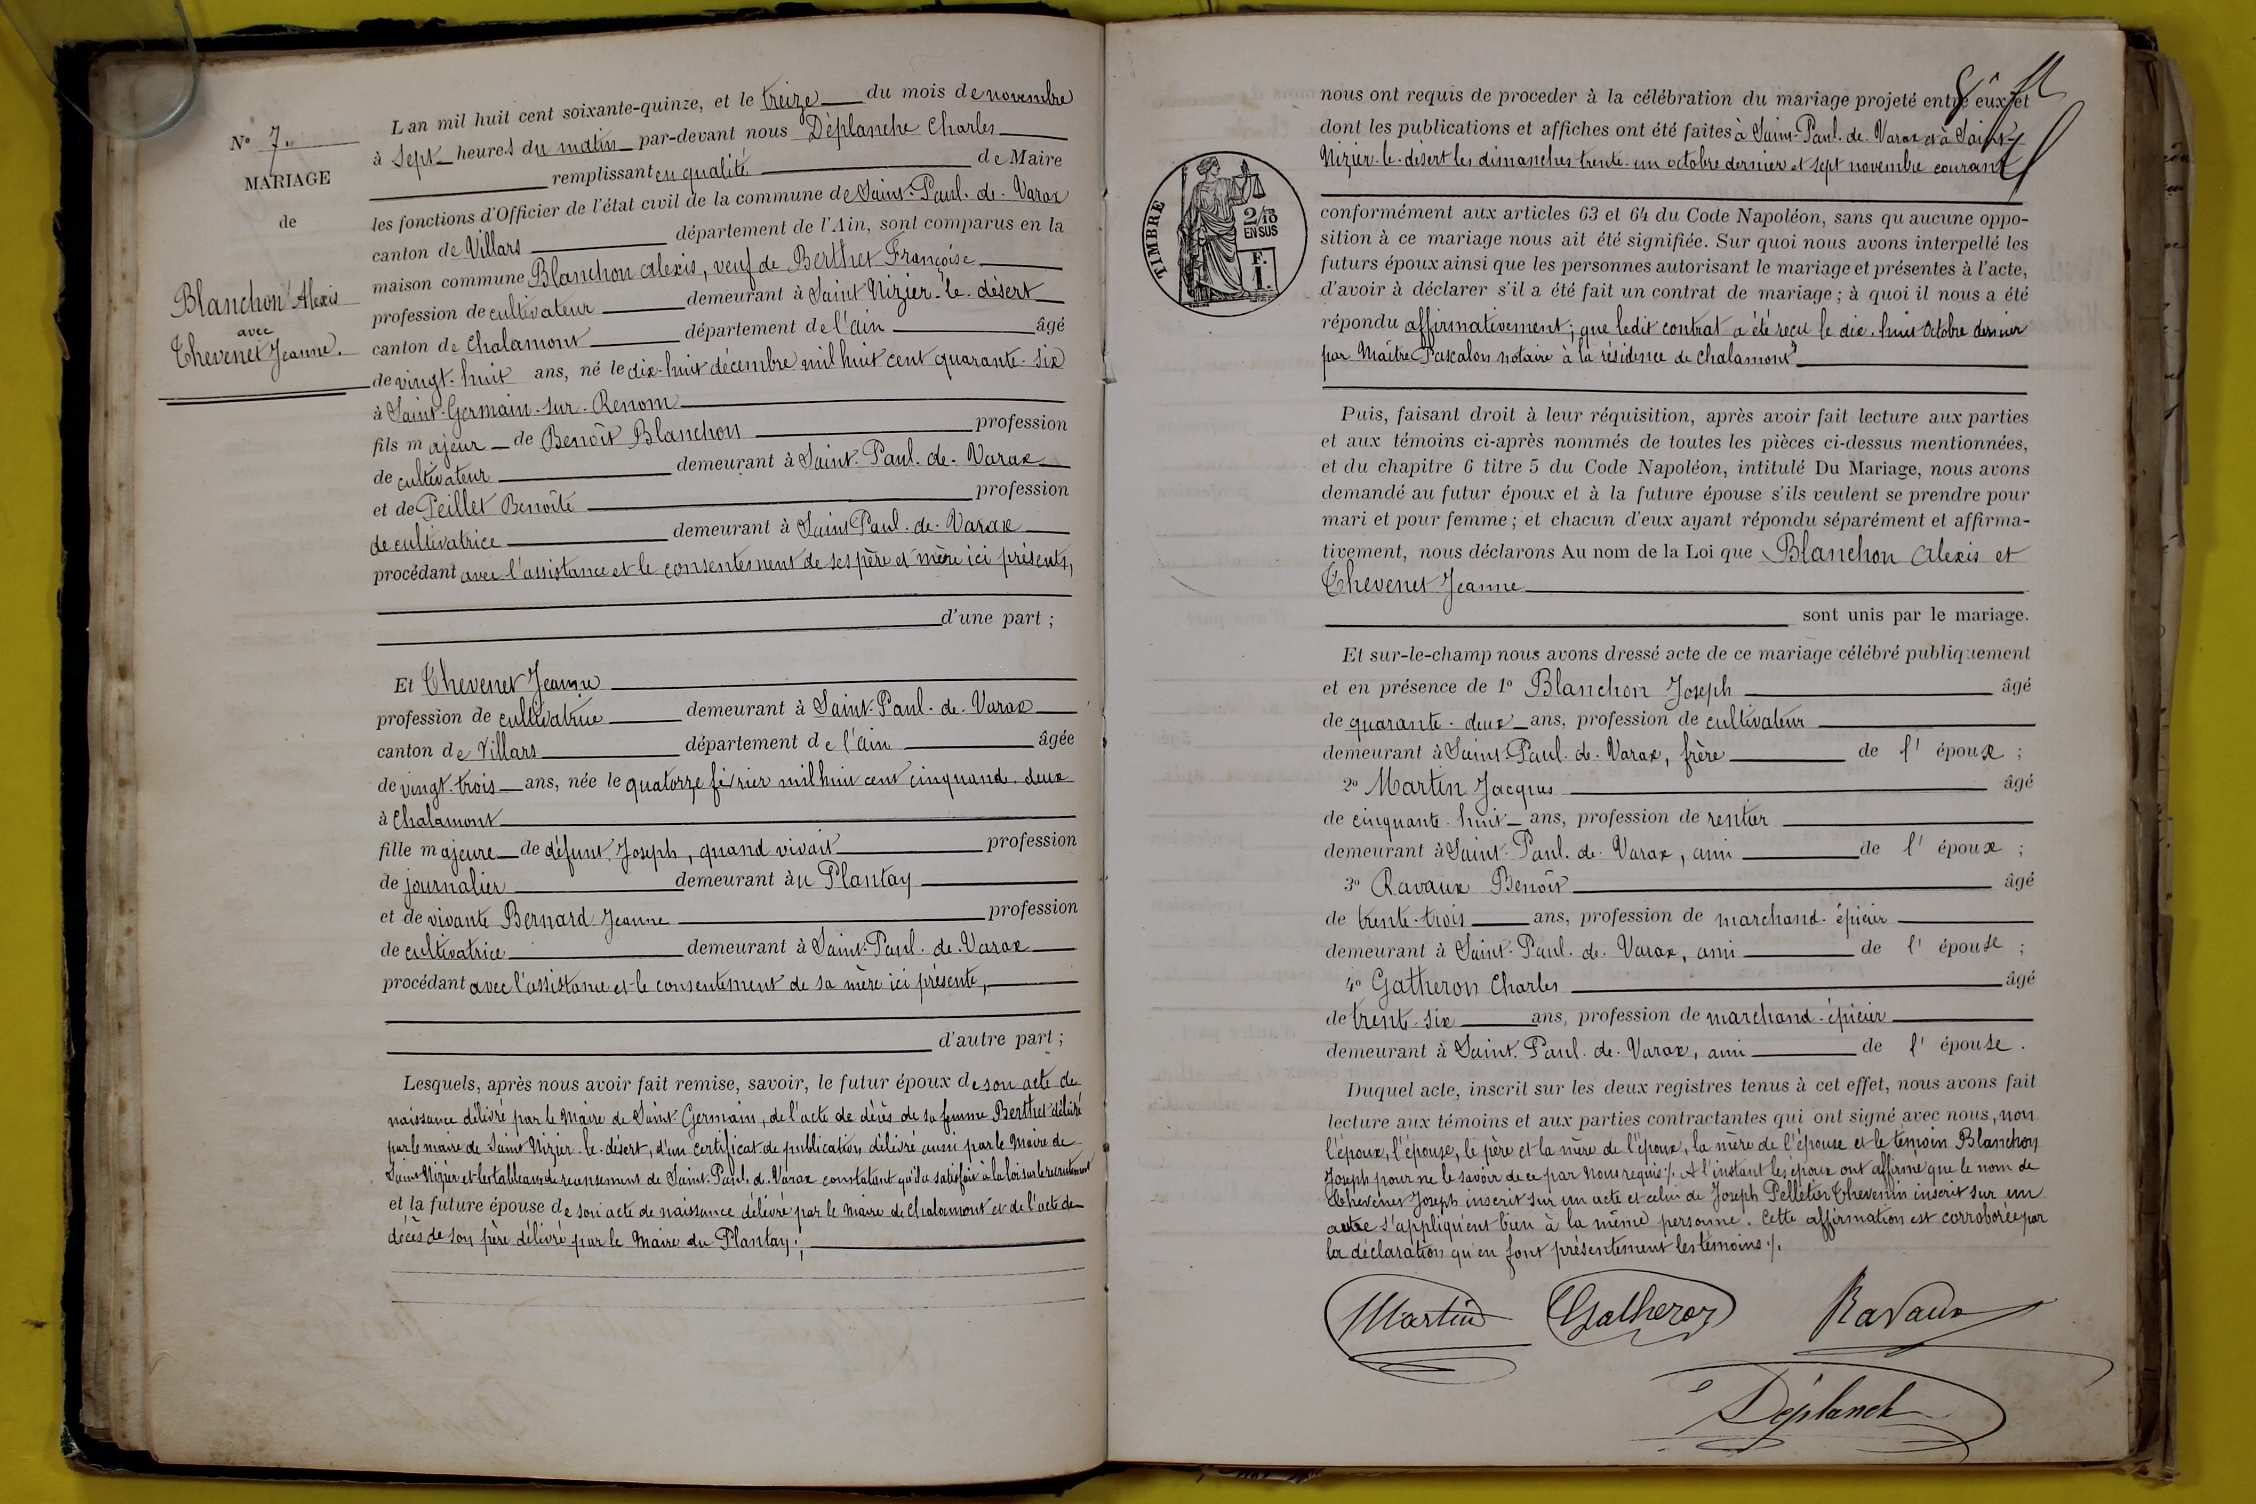 L'an mil huit cent soixante-quinze, et le treize du mois de novembre
N° 7
à Sept heures du matin par-devant nous Déplanche Charles
MARIAGE
remplissant en qualité de Maire
de
les fonctions d'Officier de l'état civil de la commune de Saint-Paul-de-Varax
canton de Villars département de l'Ain, sont comparus en la
maison commune Blanchon Alexis, veuf de Berthet Françoise
Blanchon Alexis
avec
Thevenet Jeanne.
profession de cultivateur demeurant à Saint Nizier-le-désert
canton de Chalamont département de l'ain âgé
de vingt-huit ans, né le dix-huit décembre mil huit cent quarante-six
à Saint-Germain-sur-Renom
fils majeur de Benoît Blanchon profession
de cultivateur demeurant à Saint-Paul-de-Varax
et de Peillet Benoîte profession
de cultivatrice demeurant à Saint Paul-de-Varax
procédant avec l'assistance et le consentement de ses père et mère ici présents,
d'une part ;
Et Thevenet Jeanne
profession de cultivatrice demeurant à Saint-Paul-de-Varax
canton de Villars département de l'ain âgée
de vingt-trois ans, née le quatorze février mil huit cent cinquante-deux
à Chalamont
fille majeure de défunt Joseph, quand vivait profession
de journalier demeurant au Plantay
et de vivante Bernard Jeanne profession
de cultivatrice demeurant à Saint-Paul-de-Varax
procédant avec l'assistance et le consentement de sa mère ici présente,
d'autre part ;
Lesquels, après nous avoir fait remise, savoir, le futur époux de son acte de
naissance délivré par le Maire de Saint Germain, de l'acte de décès de sa femme Berthet délivré
par le maire de Saint Nizier-le-désert, d'un certificat de publication délivré aussi par le Maire de
Saint Nizier et les tableaux de recensement de Saint-Paul-de-Varax constatant qu'il a satisfait à la loi sur le recrutement
et la future épouse de son acte de naissance délivré par le Maire de Chalamont et de l'acte de
décès de son père délivré par le Maire du Plantay ;
nous ont requis de procéder à la célébration du mariage projeté entre eux et
dont les publications et affiches ont été faites à Saint-Paul-de-Varax et à Saint-
Nizier-le-désert les dimanches trente-un octobre dernier et sept novembre courant
TIMBRE
2/10
EN SUS
F.
1.
conformément aux articles 63 et 64 du Code Napoléon, sans qu'aucune oppo-
sition à ce mariage nous ait été signifiée. Sur quoi nous avons interpellé les
futurs époux ainsi que les personnes autorisant le mariage et présentes à l'acte,
d'avoir à déclarer s'il a été fait un contrat de mariage ; à quoi il nous a été
répondu affirmativement, que ledit contrat a été reçu le dix-huit octobre dernier
par Maître Pascalon notaire à la résidence de Chalamont
Puis, faisant droit à leur réquisition, après avoir fait lecture aux parties
et aux témoins ci-après nommés de toutes les pièces ci-dessus mentionnées,
et du chapitre 6 titre 5 du Code Napoléon, intitulé Du Mariage, nous avons
demandé au futur époux et à la future épouse s'ils veulent se prendre pour
mari et pour femme ; et chacun d'eux ayant répondu séparément et affirma-
tivement, nous déclarons Au nom de la Loi que Blanchon Alexis et
Thevenet Jeanne
sont unis par le mariage.
Et sur-le-champ nous avons dressé acte de ce mariage célébré publiquement
et en présence de 1° Blanchon Joseph âgé
de quarante-deux ans, profession de cultivateur
demeurant à Saint-Paul-de-Varax, frère de l'époux ;
2° Martin Jacques âgé
de cinquante-huit ans, profession de rentier
demeurant à Saint-Paul-de-Varax, ami de l'époux ;
3° Ravaux Benoît âgé
de trente-trois ans, profession de marchand-épicier
demeurant à Saint-Paul-de-Varax, ami de l'épouse ;
4° Gatheron Charles âgé
de trente-six ans, profession de marchand-épicier
demeurant à Saint-Paul-de-Varax, ami de l'épouse.
Duquel acte, inscrit sur les deux registres tenus à cet effet, nous avons fait
lecture aux témoins et aux parties contractantes qui ont signé avec nous, non
l'époux, l'épouse, le père et la mère de l'époux, la mère de l'épouse et le témoin Blanchon
Joseph pour ne le savoir de ce par Nous requis ./. A l'instant les époux ont affirmé que le nom de
Thevenet Joseph inscrit sur un acte et celui de Joseph Pelletier Thevenin inscrit sur un
autre s'appliquent bien à la même personne. Cette affirmation est corroborée par
la déclaration qu'en font présentement les témoins ./.
Martin Gatheron Ravaux
Déplanch